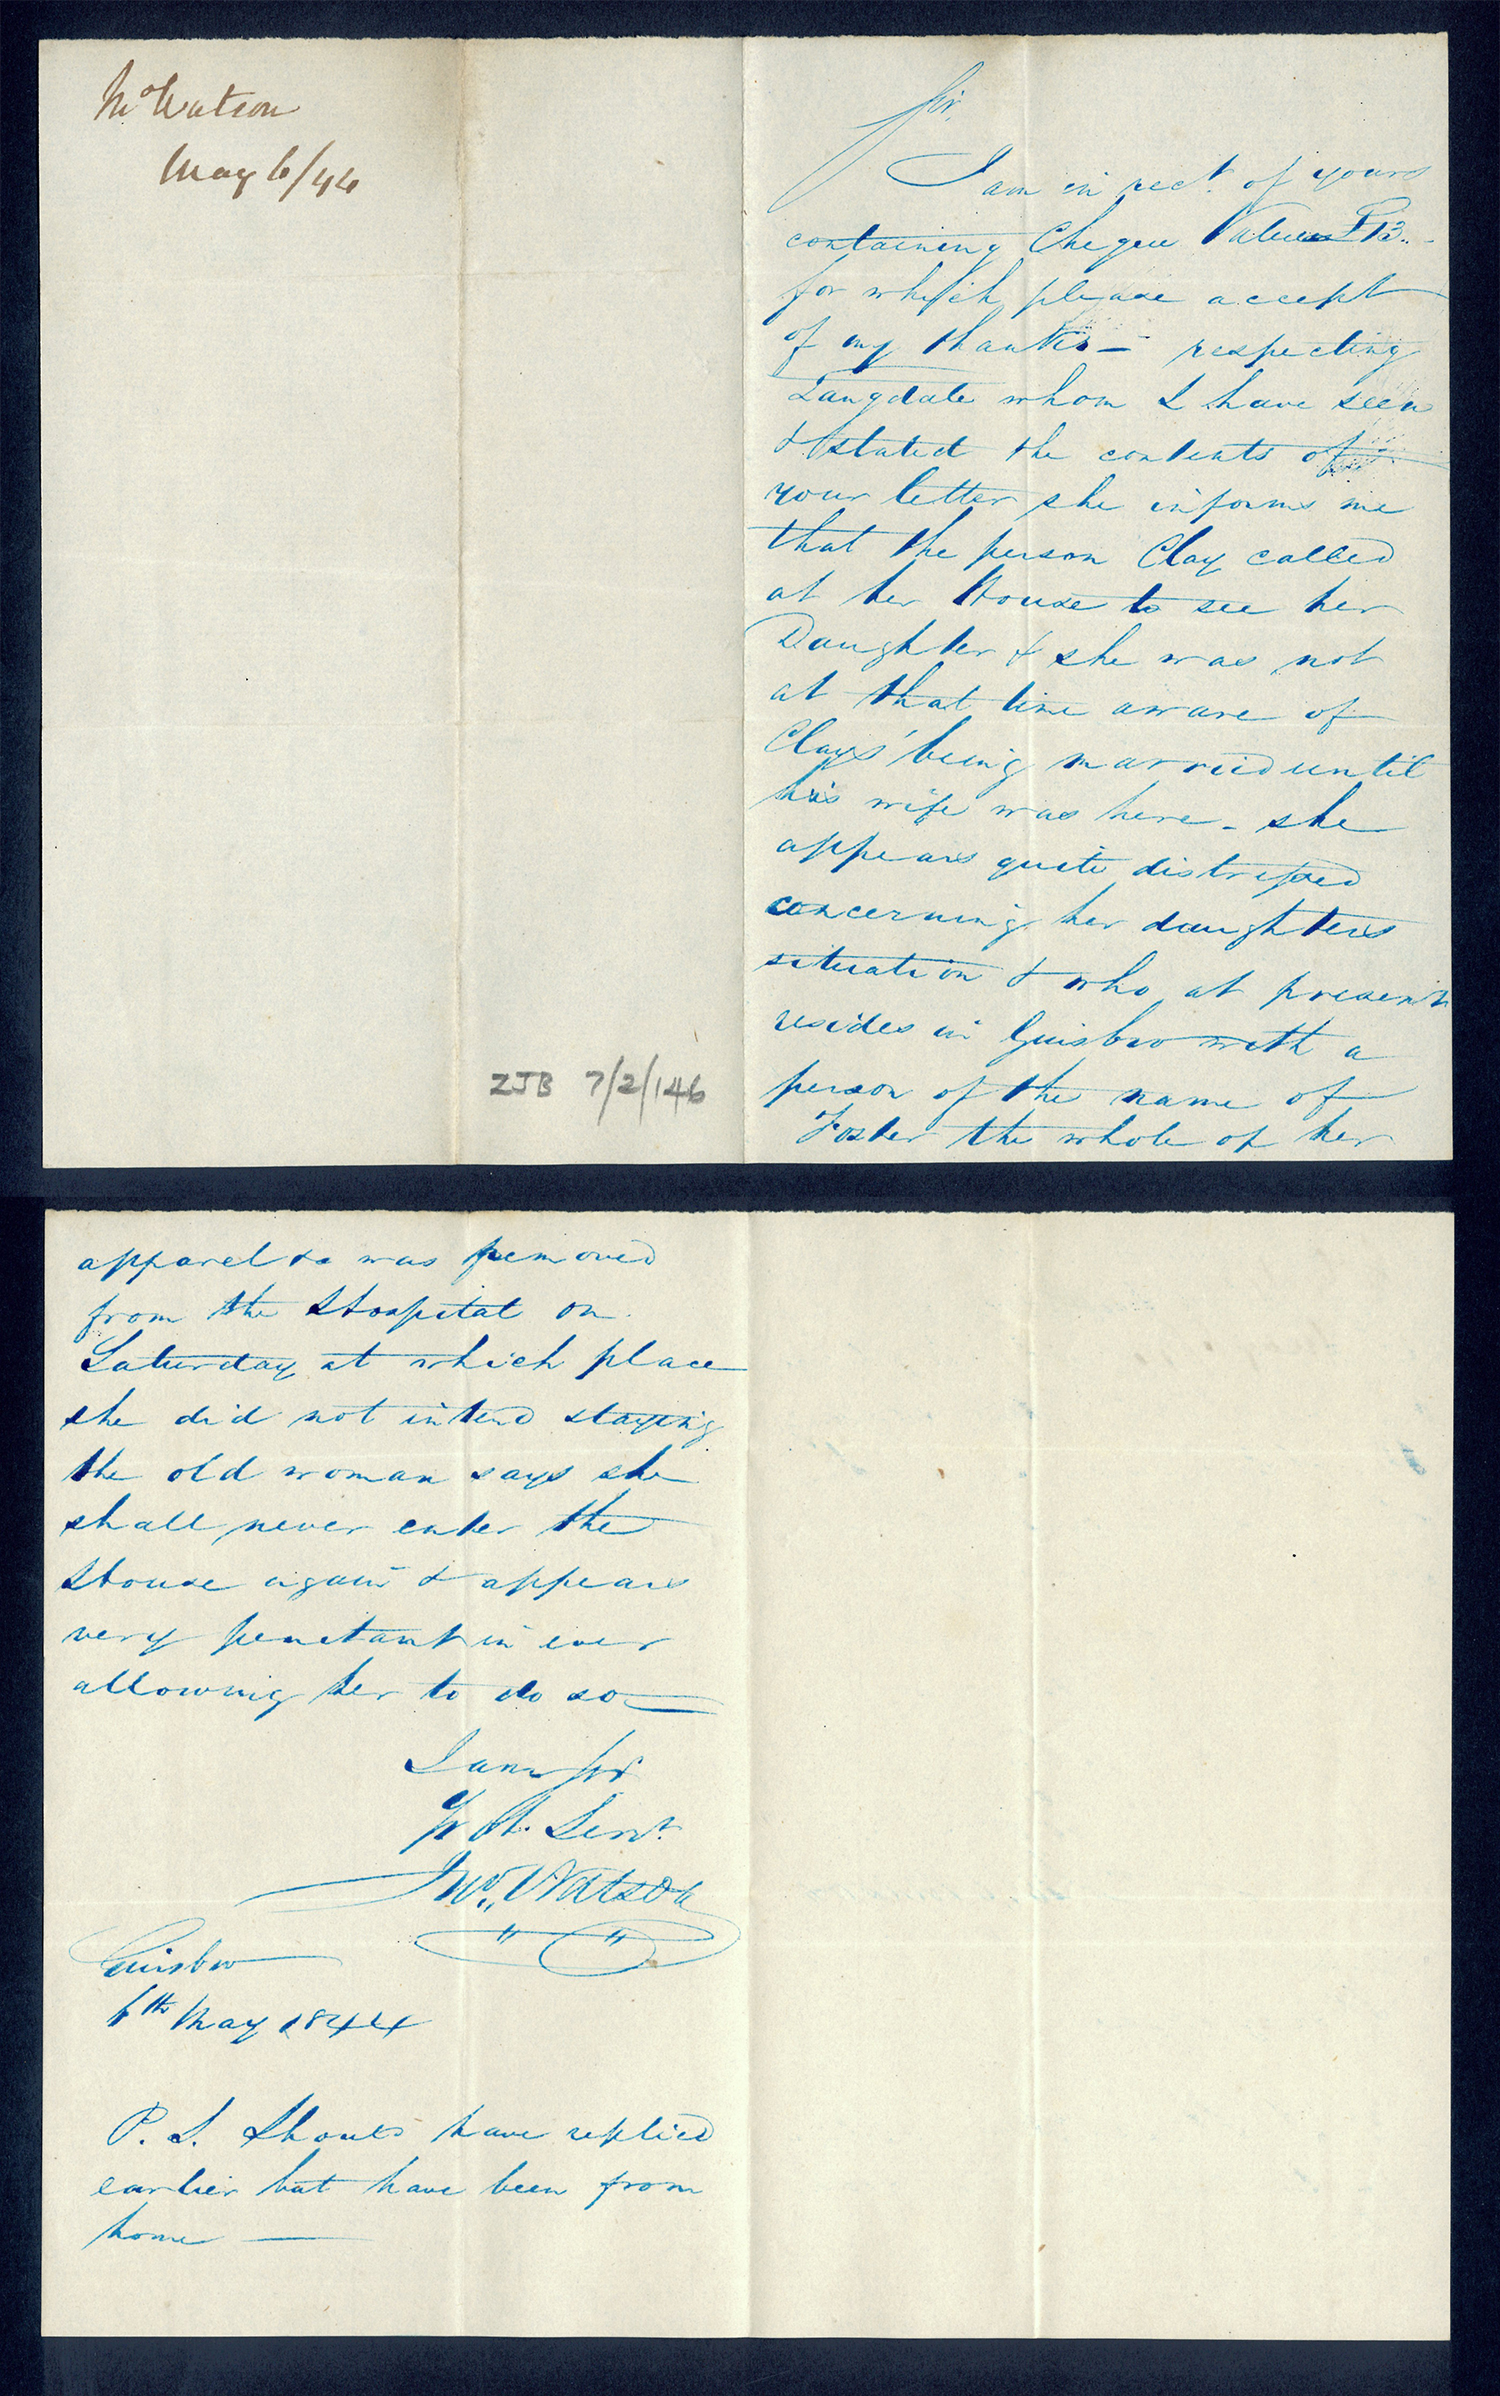 Mr Watson
May 6/44
ZJB 7/2/146
Sir,
I am in rect. of yours
containing Cheque Value £13..-
for which please accept
of my thanks – respecting
Langdale whom I have seen
& stated the contents of
your letter she informs me
that the person Clay called
at her House to see her
Daughter & she was not
at that time aware of
Clays' being married until
his wife was here - she
appears quite distressed
concerning her daughters
situation & who at present
resides in Guisbro with a
person of the name of
Foster the whole of her
apparel &c was removed
from the Hospital on
Saturday at which place
she did not intend staying
the old woman says she
shall never enter the
House again & appears
very penetant in ever
allowing her to do so
I am Sir
Yr Ob. Servt.
Jno. Watson
Guisbro
6th May 1844
P.S. Should have replied
earlier but have been from
home —